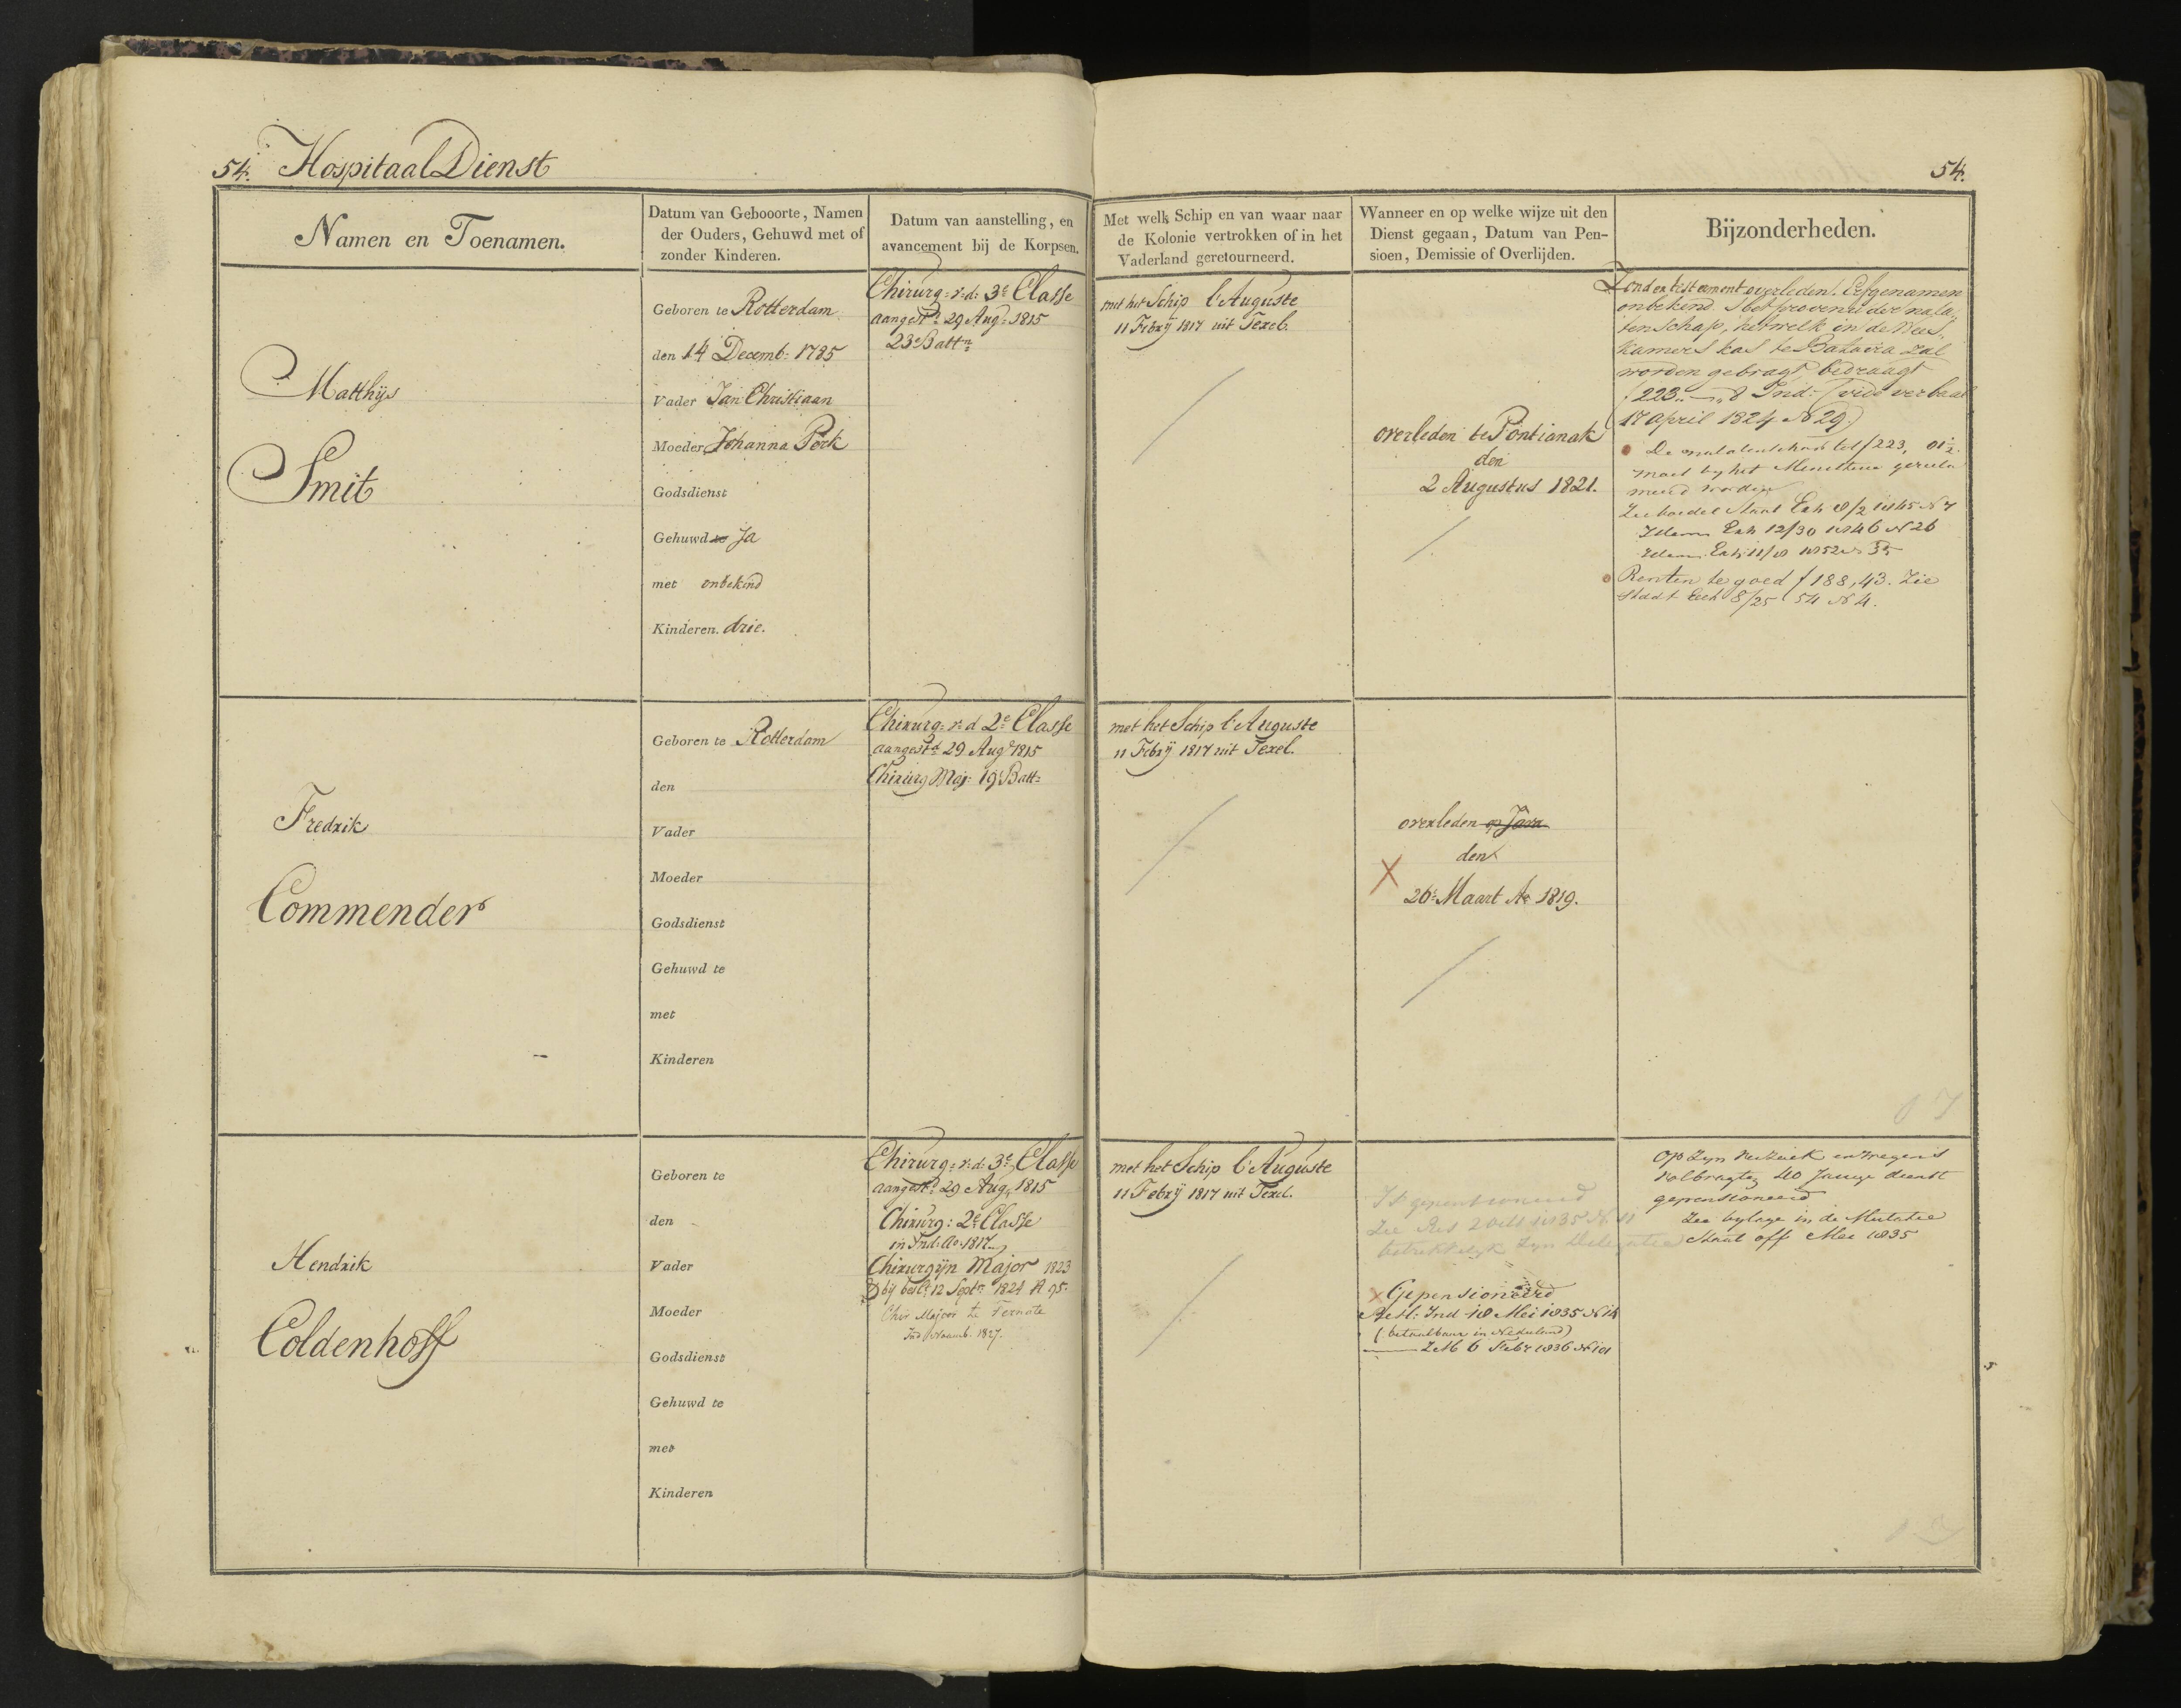 54. Hospitaal Dienst
54.
Namen en Toenamen.
Datum van Gebooorte, Namen
der Ouders, Gehuwd met of
zonder Kinderen.
Datum van aanstelling, en
avancement bij de Korpsen.
Met welk Schip en van waar naar
de Kolonie vertrokken of in het
Vaderland geretourneerd.
Wanneer en op welke wijze uit den
Dienst gegaan, Datum van Pen-
sioen, Demissie of Overlijden.
Bijzonderheden.
Matthijs
Smit
Geboren te Rotterdam
den 14 Decemb: 1785
Vader Jan Christiaan
Moeder Johanna Perk
Godsdienst
Gehuwd te Ja
met onbekend
Kinderen. drie.
Chirurg = r: d: 3e Classe
aangestd 29 Aug: 1815
23e Battn
met het Schip l'Auguste
11 Febrij 1817 uit Texel.
overleden te Pontianak
den
2 Augustus 1821.
Zonder testament overleden. Erfgenamen
onbekend. Het provenu der nala„
tenschap, hetwelk in de Wees„
kamers kas te Batavia zal
worden gebragt bedraagt
f 223.. Ind: (vide verbaal
17 april 1824 No 29.)
De nalatenschap tot f 223, 01½
moet by het Ministerie gerecla
meerd worden
Zie boedel Staat Exh 8/2 1845 No 7
Idem Exh 12/30 1846 No 26
Idem Exh 11/8 1852 No 35
Renten te goed f 188,43. Zie
Staat Exh 8/25 54 No 4.
Fredrik
Commender
Geboren te Rotterdam
den
Vader
Moeder
Godsdienst
Gehuwd te
met
Kinderen
Chirurg = r: d 2e Classe
aangestd 29 Aug 1815
Chirurg Maj: 19e Batt=
met het Schip l'Auguste
11 Febrij 1817 uit Texel.
overleden op Java
den
X
26e Maart Ao 1819.
Hendrik
Coldenhoff
Geboren te
den
Vader
Moeder
Godsdienst
Gehuwd te
met
Kinderen
Chirurg = r: d: 3e Classe
aangestd 29 Aug 1815
Chirurg: 2e Classe
in Ind: Ao 1817
Chirurgijn Major 1823
bij beslt 12 Septr 1824 A 95.
Chir Majoor te Ternate
Ind Naamb. 1827.
met het Schip l'Auguste
11 Febrij 1817 uit Texel.
Is gepensioneerd
Zie Res 2 Oct 1835 No 11
betrekkelyk zyn Delegatie
x Gepensioneerd
Besl: Ind 18 Mei 1835 No 14
(betaalbaar in Nederland)
6 Febr 1836 No 101
Op zyn verzoek en wegens
volbragten 40 Jarige dienst
gepensioneerd
Zie bylage in de Mutatie
Staat off Mei 1835